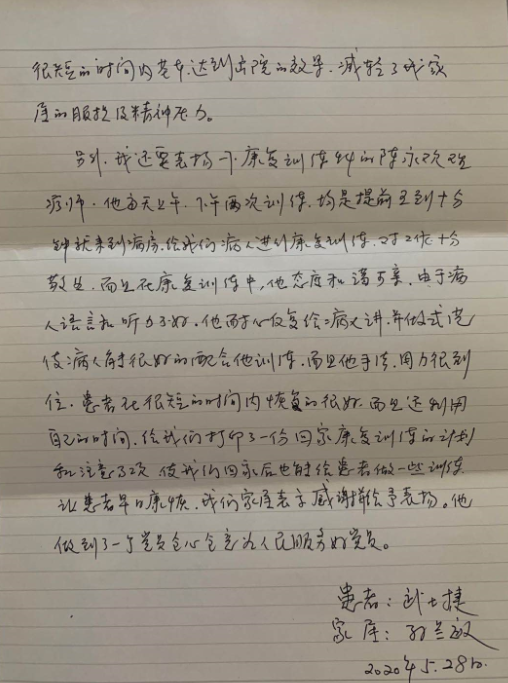 很短的时间内基本达到出院的效果。减轻了我家
属的服担及精神压力。
另外,我还要表扬一下康复训练科的陈永欢理
疗师。他每天上午、下午两次训练,均是提前五到十分
钟就来到病房,给我们病人进行康复训练,对工作十分
敬业,而且在康复训练中,他态度和谒可亲,由于病
人语言和听力不好。他耐心反复给病人讲,并做式范
使病人能很好的配合他训练,而且他手法,用力很到
位,患者在很短的时间内恢复的很好,而且还利用
自己的时间,给我们打印了一份回家康复训练的计划
和注意事项 使我们回家后也能给患者做一些训练
让患者早日康愎,我们家属表示感谢并给予表扬。他
做到了一个党员全心全意为人民服务好党员。
患者:武士捷
家属:孙兰敏
2020年5.28日.